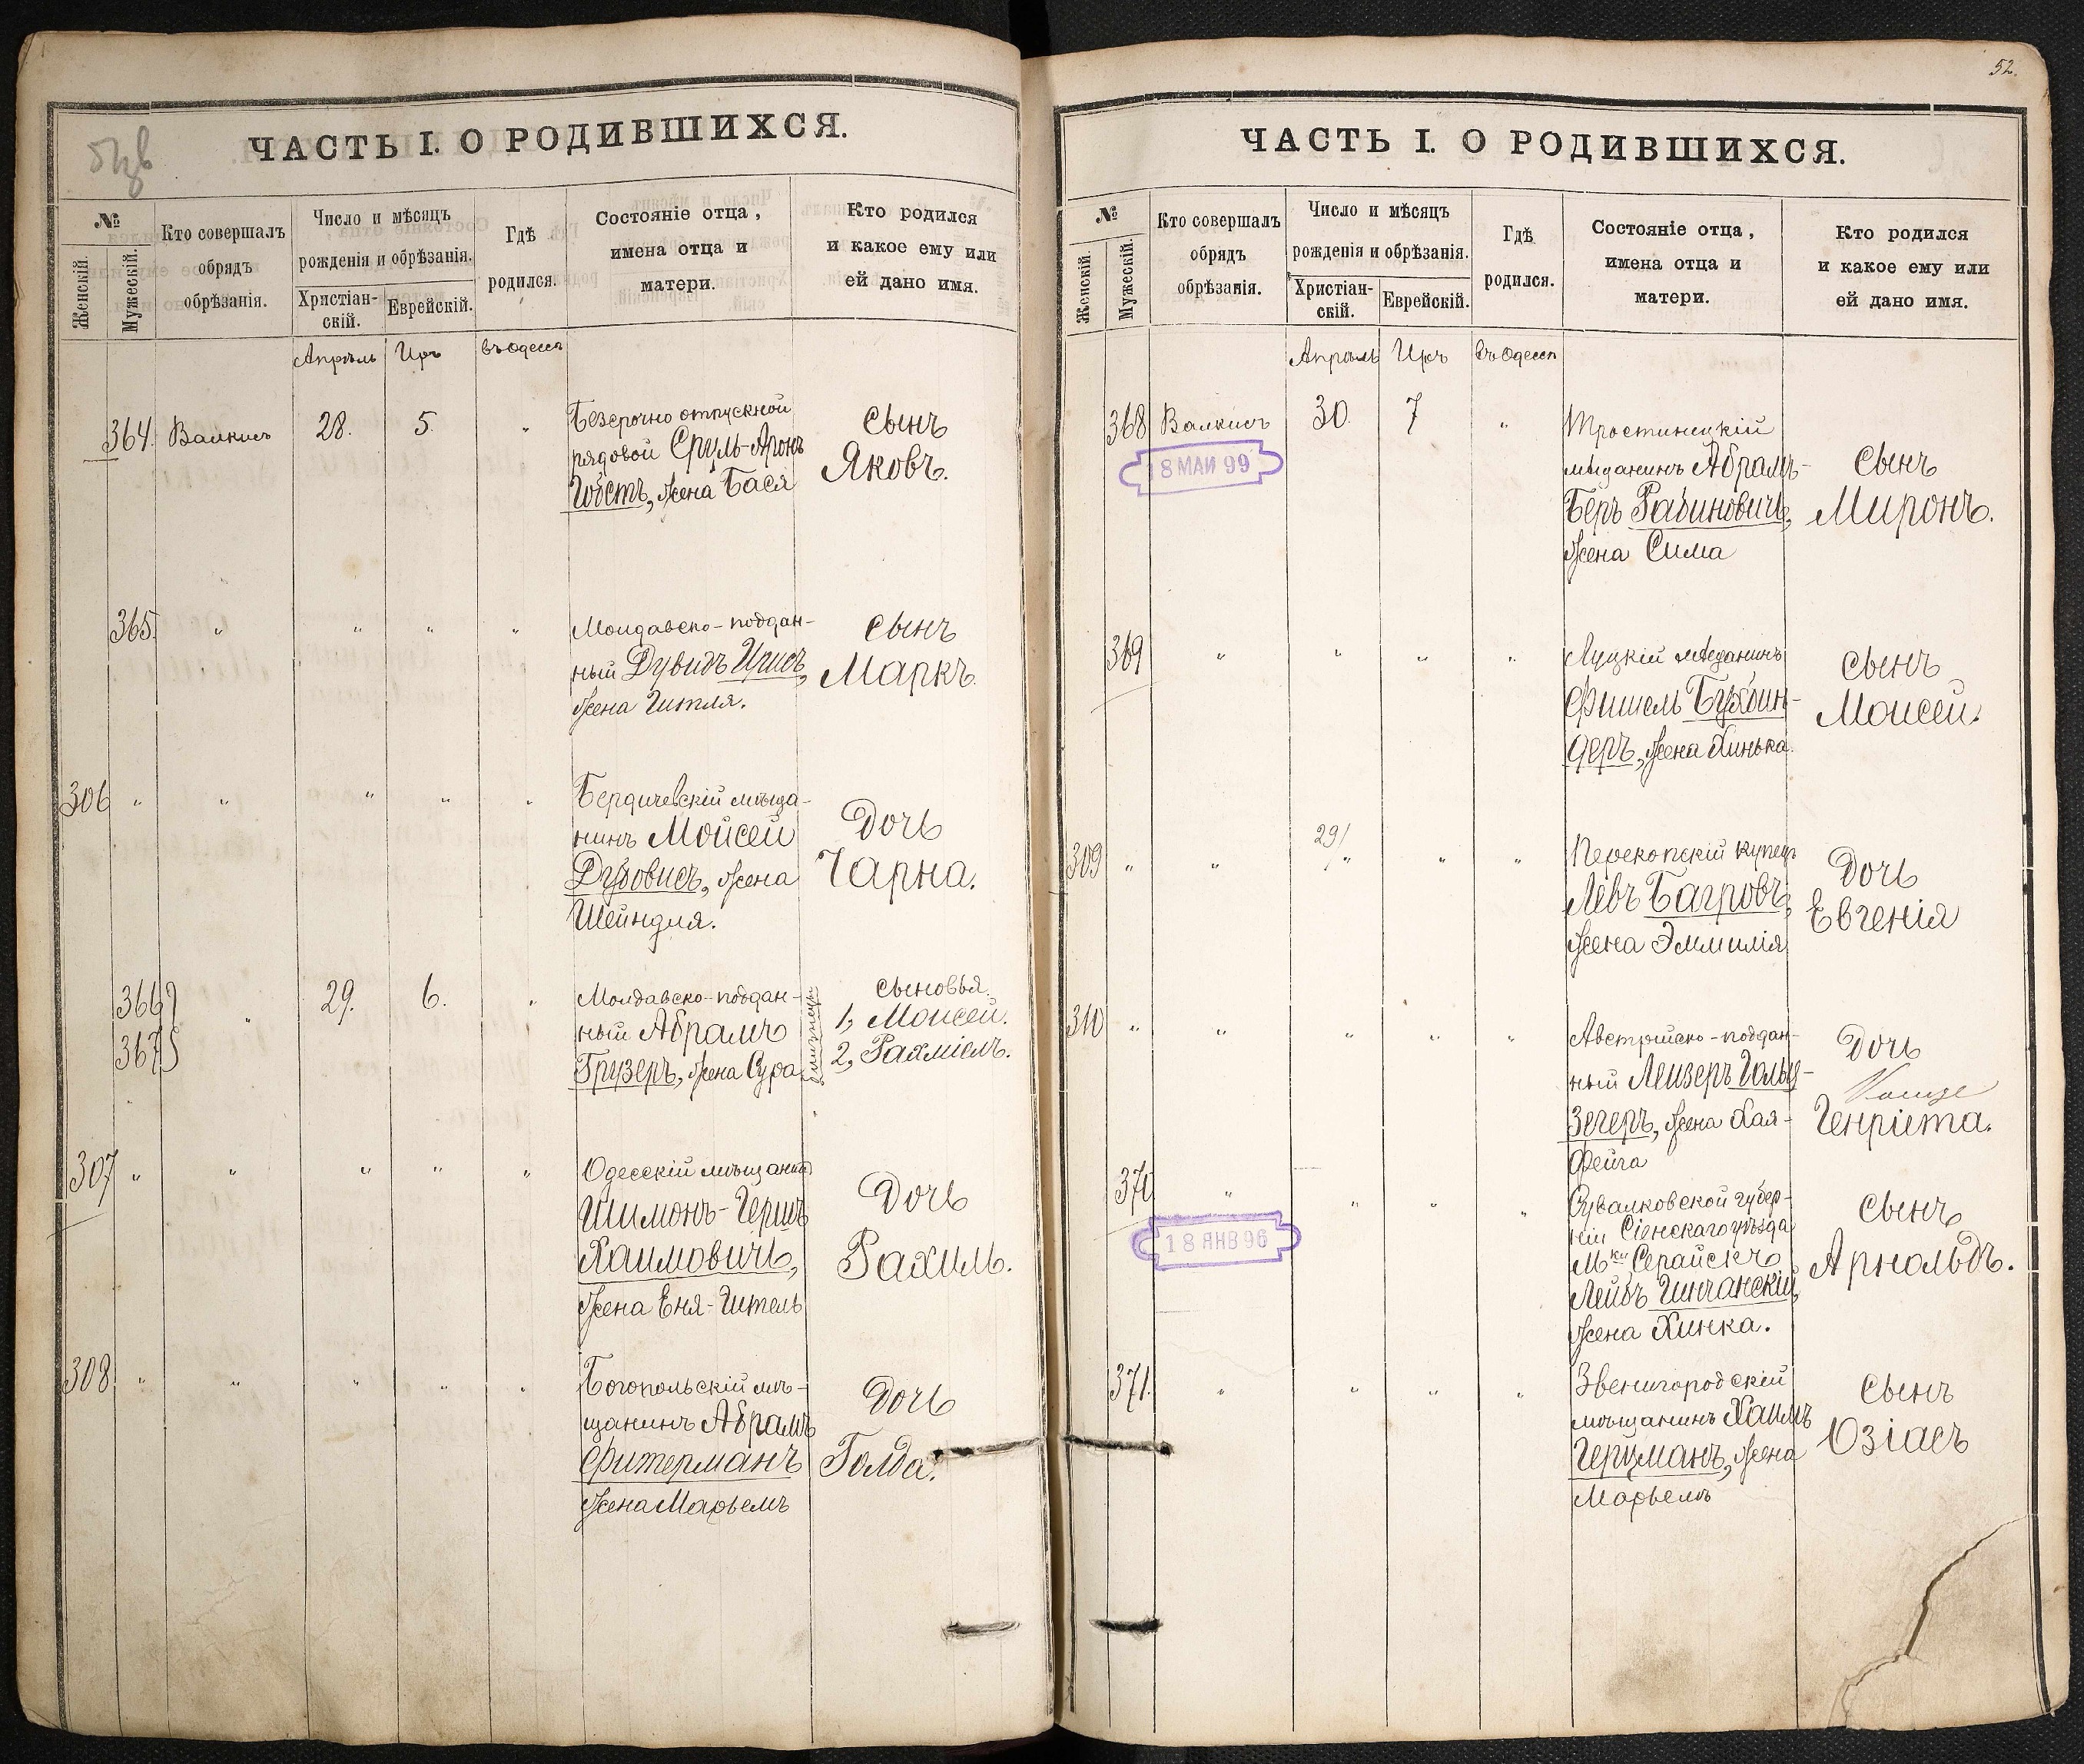 ЧАСТЬ I. О РОДИВШИХСЯ.
№
Женскій.
Мужескій.
Кто совершалъ
обрядъ
обрѣзанія.
Число и мѣсяцъ
рожденія и обрѣзанія.
Христіан-
скій.
Еврейскій.
Гдѣ
родился.
Состояніе отца,
имена отца и
матери.
Кто родился
и какое ему или
ей дано имя.
Апрѣль Иръ въ Одессѣ
364. Валкисъ 28. 5. "
Безсрочно отпускной
рядовой Сруль-Аронъ
жена Бася
сынъ
Яковъ.
365. " " " "
Молдавско-поддан-
ный Дувидъ Ицисъ,
жена Гитля.
сынъ
Маркъ.
306 " " " " "
Бердичевскій мѣща-
нинъ Мойсей
Дубовисъ, жена
Шейндля.
Дочь
Чарна.
366
367 " 29. 6. "
Молдавско-поддан-
ный Абрамъ
Грузеръ, жена Сура
близнецы
сыновья.
1, Моисей.
2, Рахміель.
307 " " " " "
Одесскій мѣщанинъ
Шимонъ-Гершъ
Хаимовичъ,
жена Еня-Гитель
Дочь
Рахиль.
308 " " " " "
Богопольскій мѣ-
щанинъ Абрамъ
Фитерманъ
жена Марьемъ
Дочь
Голда.
52.
ЧАСТЬ I. О РОДИВШИХСЯ.
№
Женскій.
Мужескій.
Кто совершалъ
обрядъ
обрѣзанія.
Число и мѣсяцъ
рожденія и обрѣзанія.
Христіан-
скій.
Еврейскій.
Гдѣ
родился.
Состояніе отца,
имена отца и
матери.
Кто родился
и какое ему или
ей дано имя.
Апрѣль Иръ въ Одессѣ
368 Валкисъ 30. 7 "
18 МАИ 99
Тростинецкій
мѣщанинъ Абрамъ-
Беръ Рабиновичъ,
жена Сима
сынъ
Миронъ.
369 " " " "
Луцкій мѣщанинъ
Фишель Бухбин-
деръ, жена Хинька.
сынъ
Моисей.
309 " " 29/ " " "
Перекопскій купецъ
Левъ Багровъ,
жена Эммилія
Дочь
Евгенія
310 " " " " "
Австрійско-поддан-
ный Лейзеръ Гольц-
зегеръ, жена Хая-
Фейга
Дочь
Генріета.
370 " " " "
18 ЯНВ 96
Сувалковской губер-
ніи Сіенскаго уѣзда
Мки Серайскъ
Лейбъ Гинчанскій,
жена Хинка.
сынъ
Арнольдъ.
371. " " " "
Звенигородскій
мѣщанинъ Хаимъ
Герцманъ, жена
Марьемъ
сынъ
Озіасъ